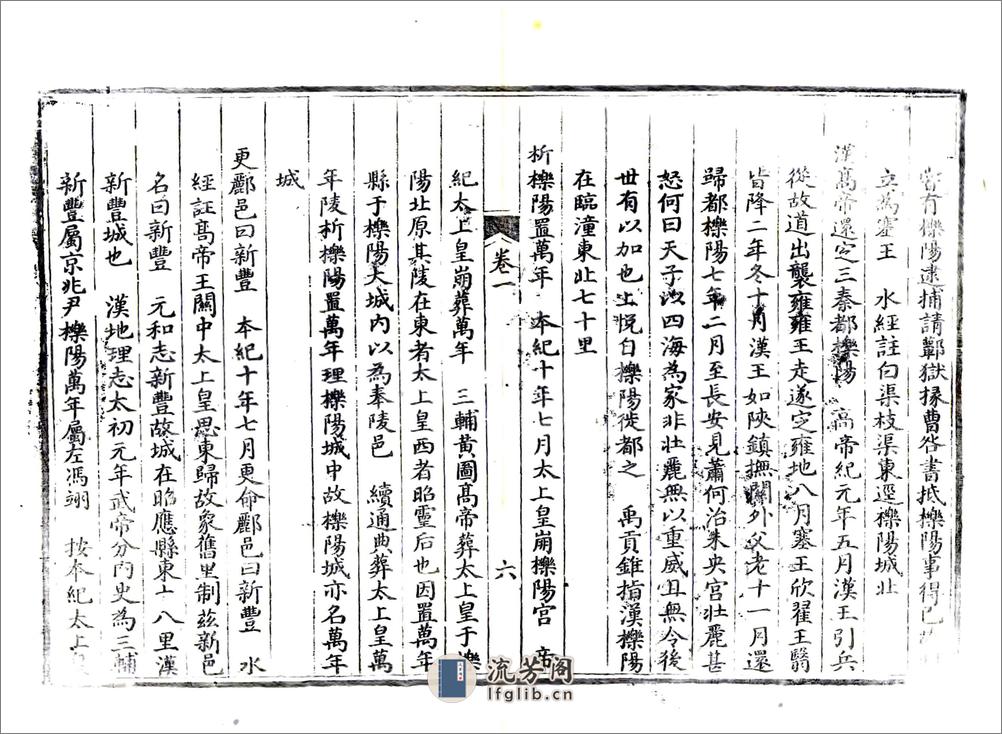 嘗有櫟陽逮捕請鄿獄掾曹咎書抵櫟陽事得已
立為塞王　水經註白渠枝渠東逕櫟陽城北
漢高帝還定三秦都櫟陽　高帝紀元年五月漢王引兵
從故道出襲雍雍王走遂定雍地八月塞王欣翟王翳
皆降二年冬十月漢王如陝鎮撫關外父老十一月還
歸都櫟陽七年二月至長安見蕭何治未央宮壯麗甚
怒何曰天子以四海為家非壯麗無以重威且無令後
世有以加也上悅自櫟陽徙都之　禹貢錐指漢櫟陽
在臨潼東北七十里
析櫟陽置萬年　本紀十年七月太上皇崩櫟陽宮　帝
卷一
六
紀太上皇崩葬萬年　三輔黃圖高帝葬太上皇于櫟
陽北原其陵在東者太上皇西者昭靈后也因置萬年
縣于櫟陽大城內以為奉陵邑　續通典葬太上皇萬
年陵析櫟陽置萬年理櫟陽城中故櫟陽城亦名萬年
城
更酈邑曰新豐　本紀十年七月更命酈邑曰新豐　水
經註高帝王關中太上皇思東歸故象舊里制茲新邑
名曰新豐　元和志新豐故城在昭應縣東十八里漢
新豐城也　漢地理志太初元年武帝分內史為三輔
新豐屬京兆尹櫟陽萬年屬左馮翊　按本紀太上
流芳阁
lfglib.cn